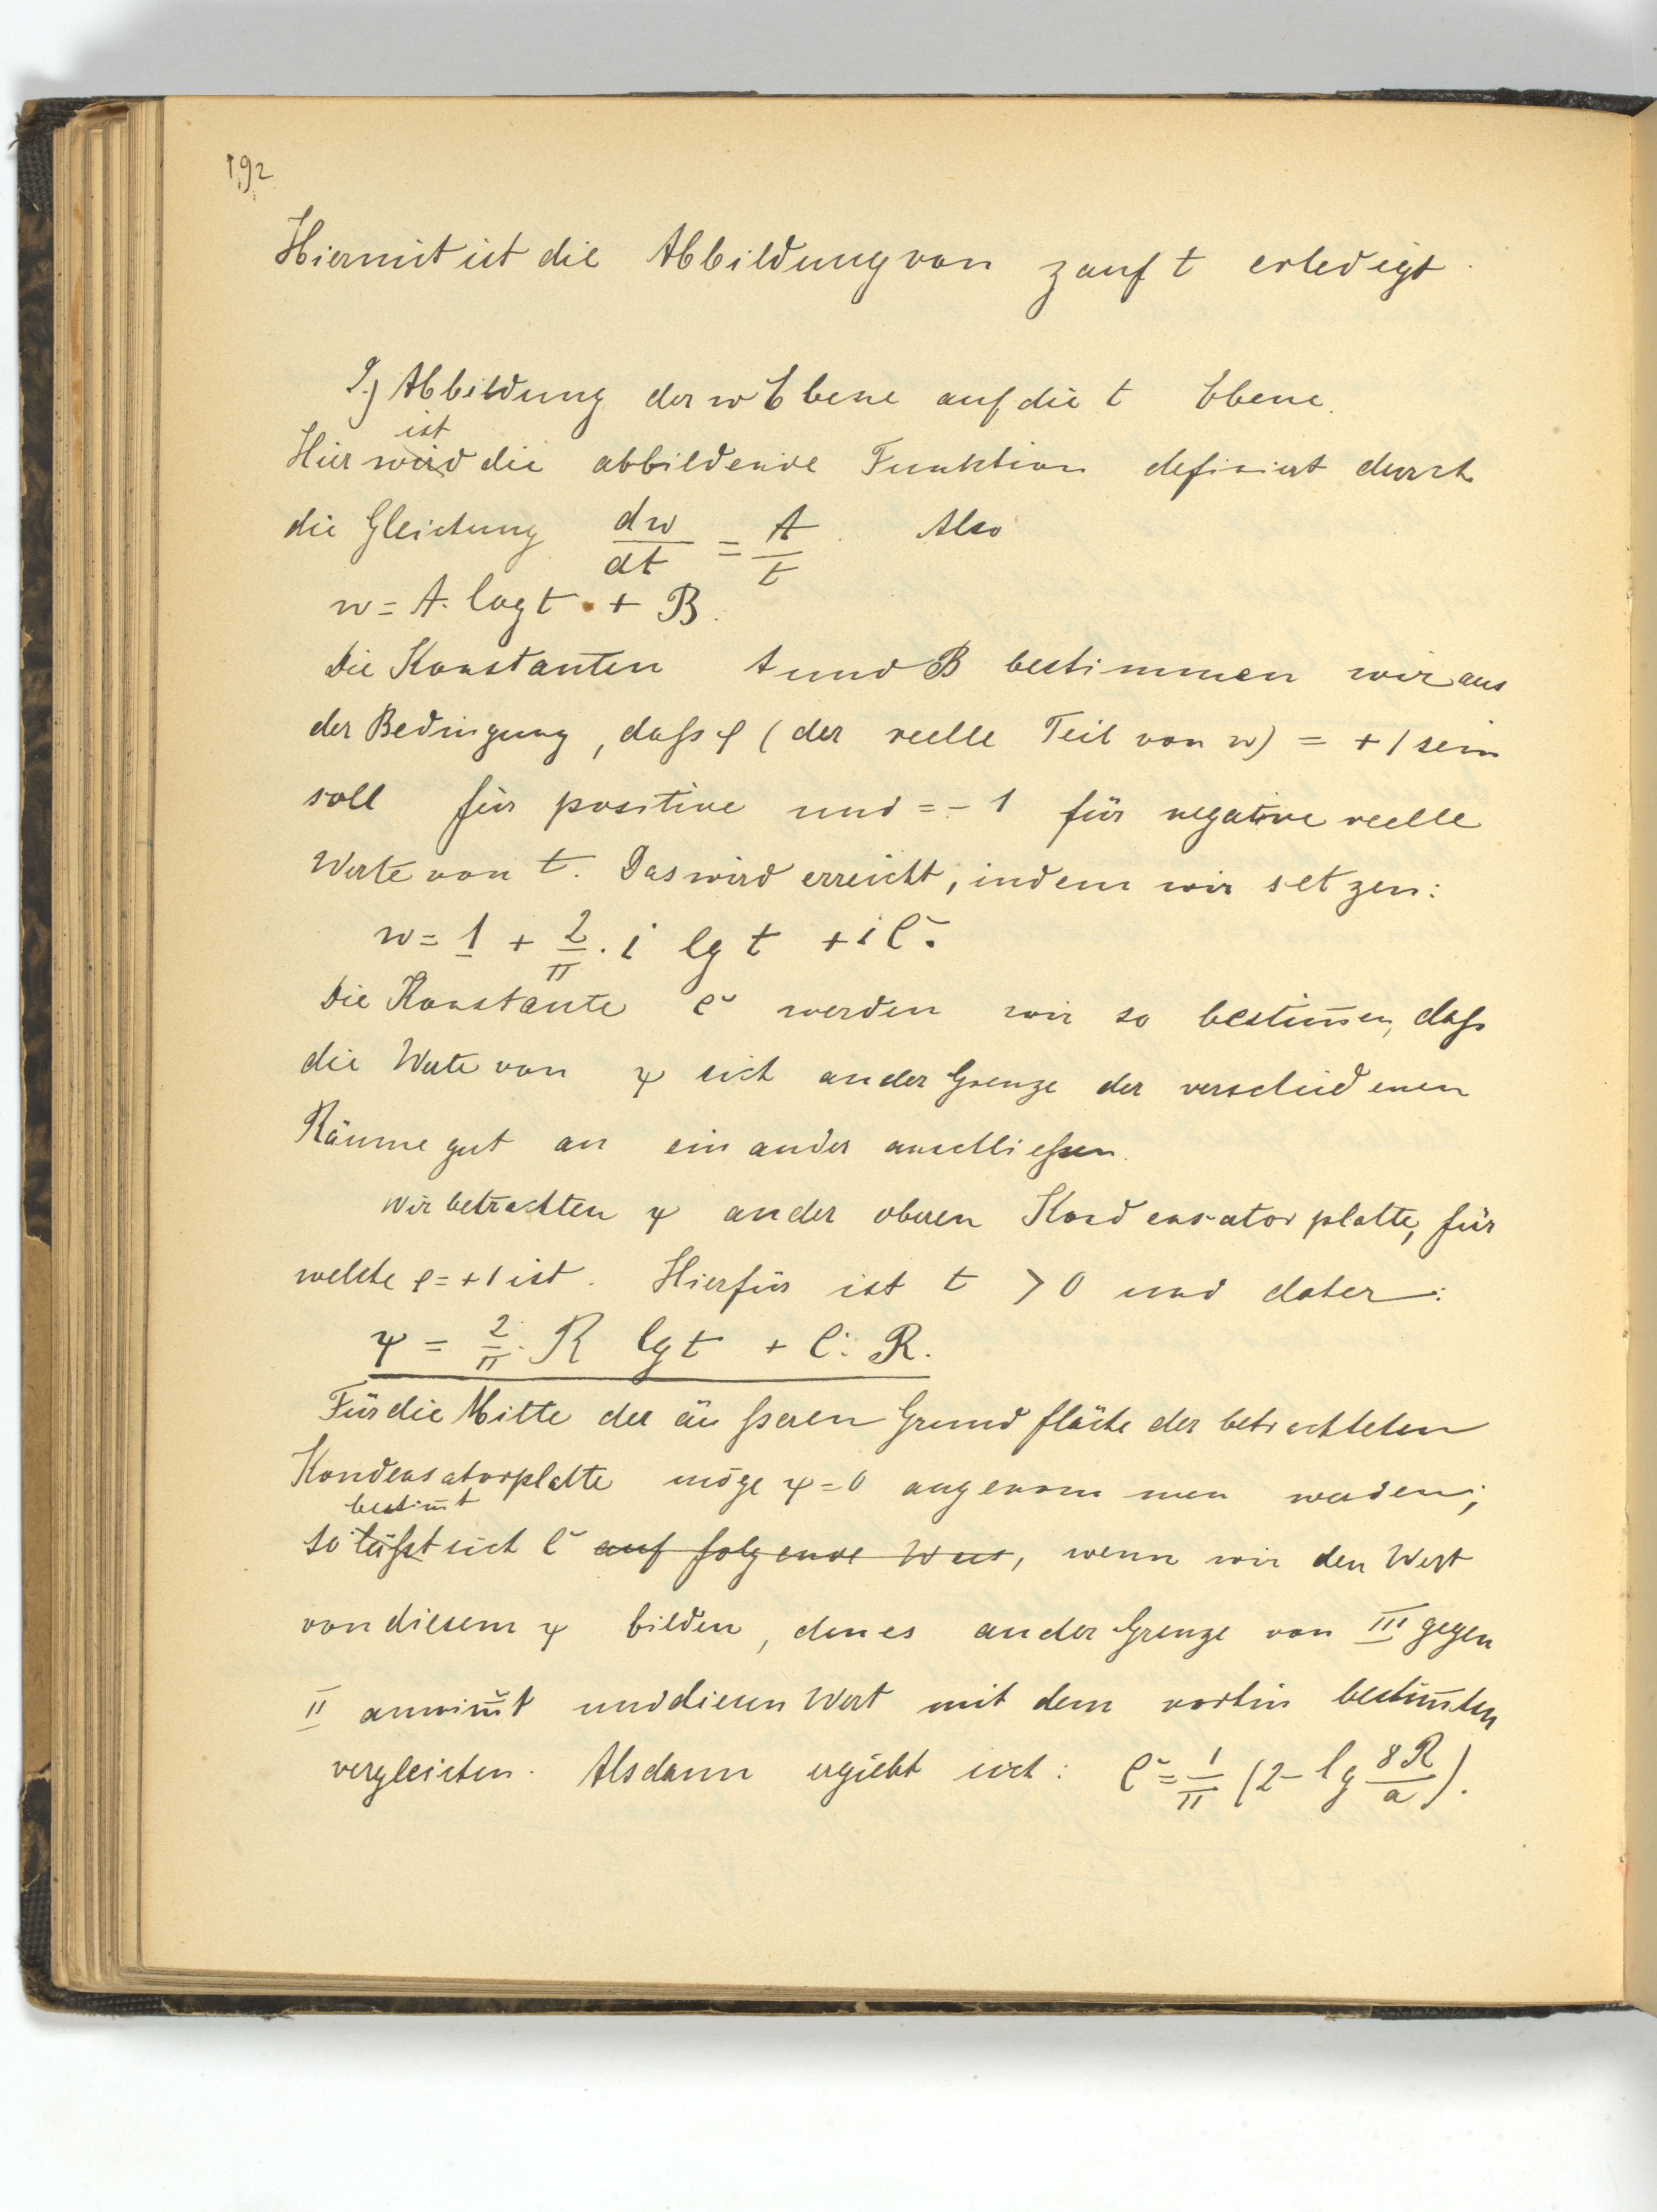 192
Hiermit ist die Abbildung von z auf t erledigt.
2.) Abbildung der w Ebene auf die t Ebene.
ist
Hier wird die abbildende Funktion definiert durch
die Gleichung dw/dt = A/t. Also
w = A. log t + B.
Die Konstanten A und B bestimmen wir aus
der Bedingung, dass φ (der reelle Teil von w) = +1 sein
soll für positive und = -1 für negative reelle
Werte von t. Das wird erreicht, indem wir setzen:
w = 1 + 2/π . i lg t + i C̆.
Die Konstante C̆ werden wir so bestim̅en, dass
die Werte von ψ sich an der Grenze der verschiedenen
Räume gut an einander anschliessen.
Wir betrachten ψ an der oberen Kondensatorplatte, für
welche φ = +1 ist. Hierfür ist t > 0 und daher:
ψ = 2/π . R lg t + C̆. R.
Für die Mitte der äusseren Grundfläche der betrachteten
Kondensatorplatte möge ψ = 0 angenommen werden;
bestim̅t
so lässt sich C̆ auf folgende Weis, wenn wir den Wert
von diesem ψ bilden, den es an der Grenze von III gegen
II annim̅t und diesen Wert mit dem vorhin bestim̅ten
vergleichen. Alsdann ergiebt sich: C̆ = 1/π (2 - lg 8R/a).